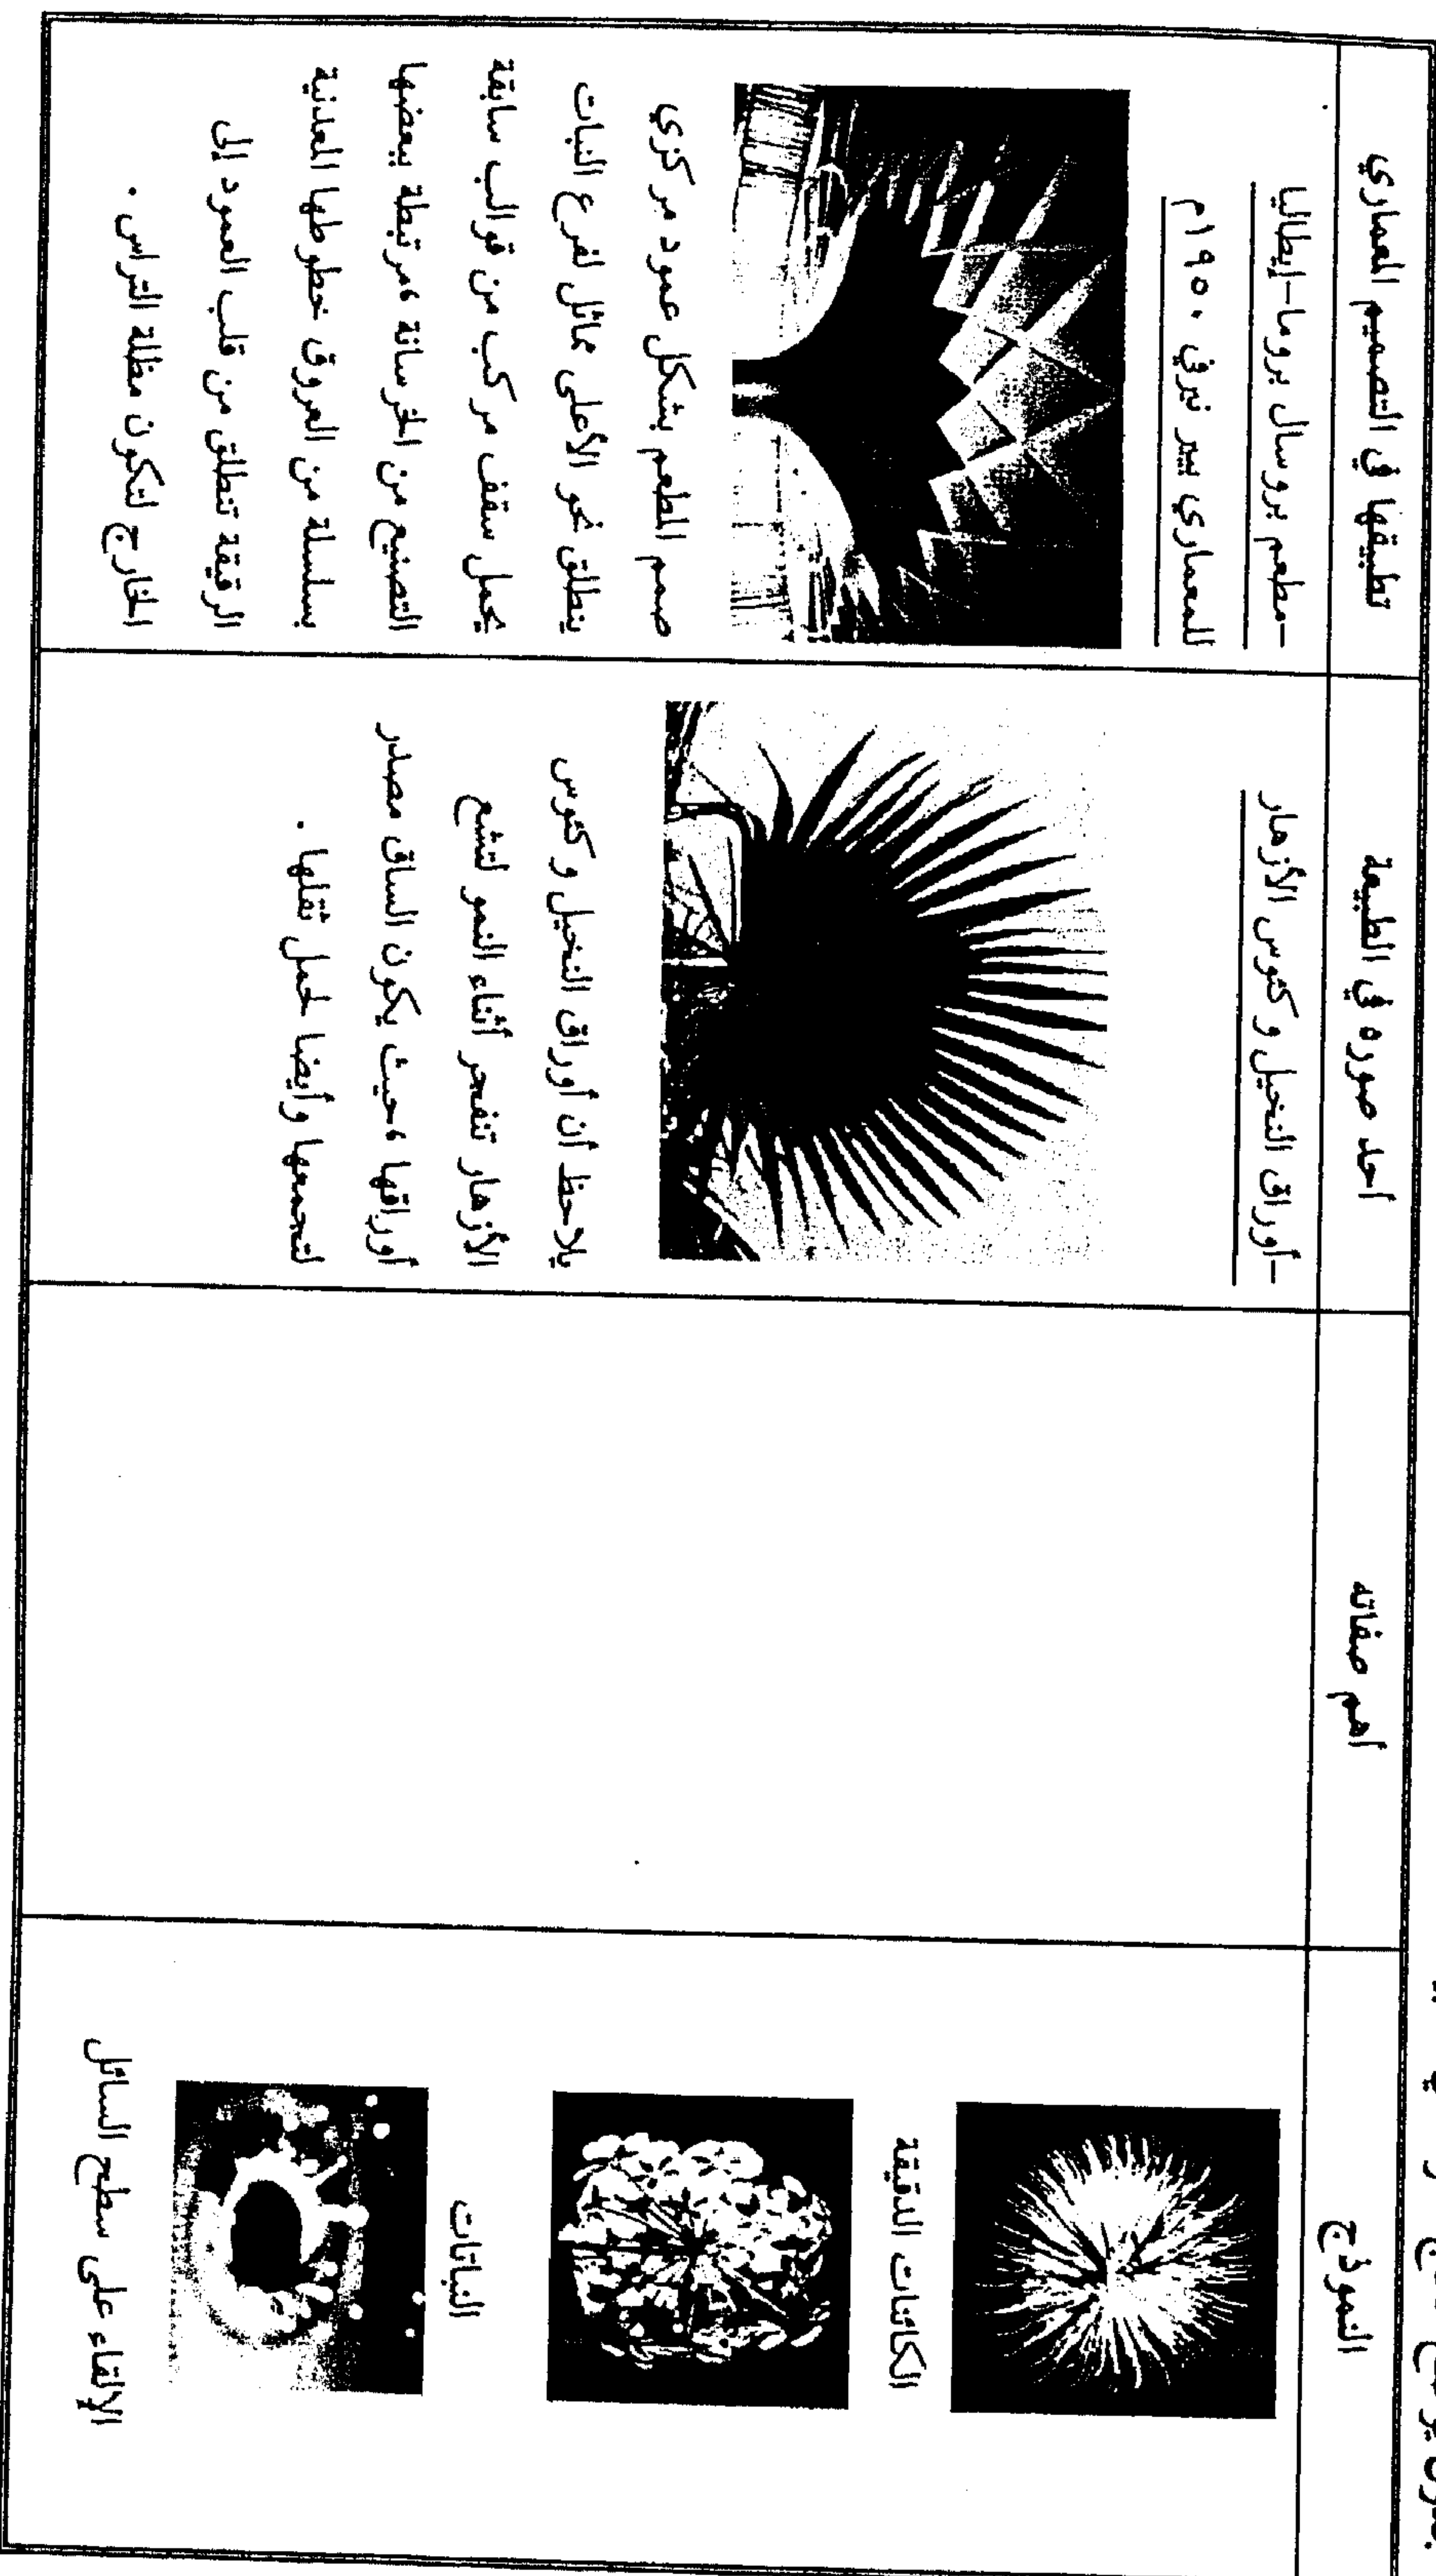 النموذج
أهم صفاته
أحد صوره في الطبيعة
تطبيقها في التصميم المعماري
الكائنات الدقيقة
النباتات
الإلقاء على سطح السائل
-أوراق النخيل وكئوس الأزهار
يلاحظ أن أوراق النخيل وكئوس
الأزهار تنفجر أثناء النمو لتشع
أوراقها ،حيث يكون الساق مصدر
لتجمعها وأيضا لحمل ثقلها .
-مطعم بروسال بروما-إيطاليا
للمعماري بير نيرفي ١٩٥٠م
صمم المطعم بشكل عمود مركزي
ينطلق نحو الأعلى مماثل لفرع النبات
يحمل سقف مركب من قوالب سابقة
التصنيع من الخرسانة ،مرتبطة ببعضها
بسلسلة من العروق خطوطها المعدنية
الرقيقة تنطلق من قلب العمود إلى
الخارج لتكون مظلة التراس .